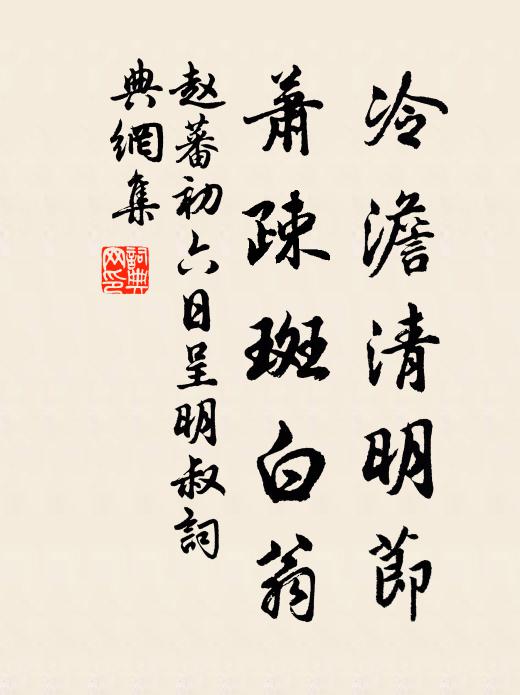 冷澹清明節
蕭疎斑白翁
趙蕃初六日呈明叔詞
典網集
詞典
网印